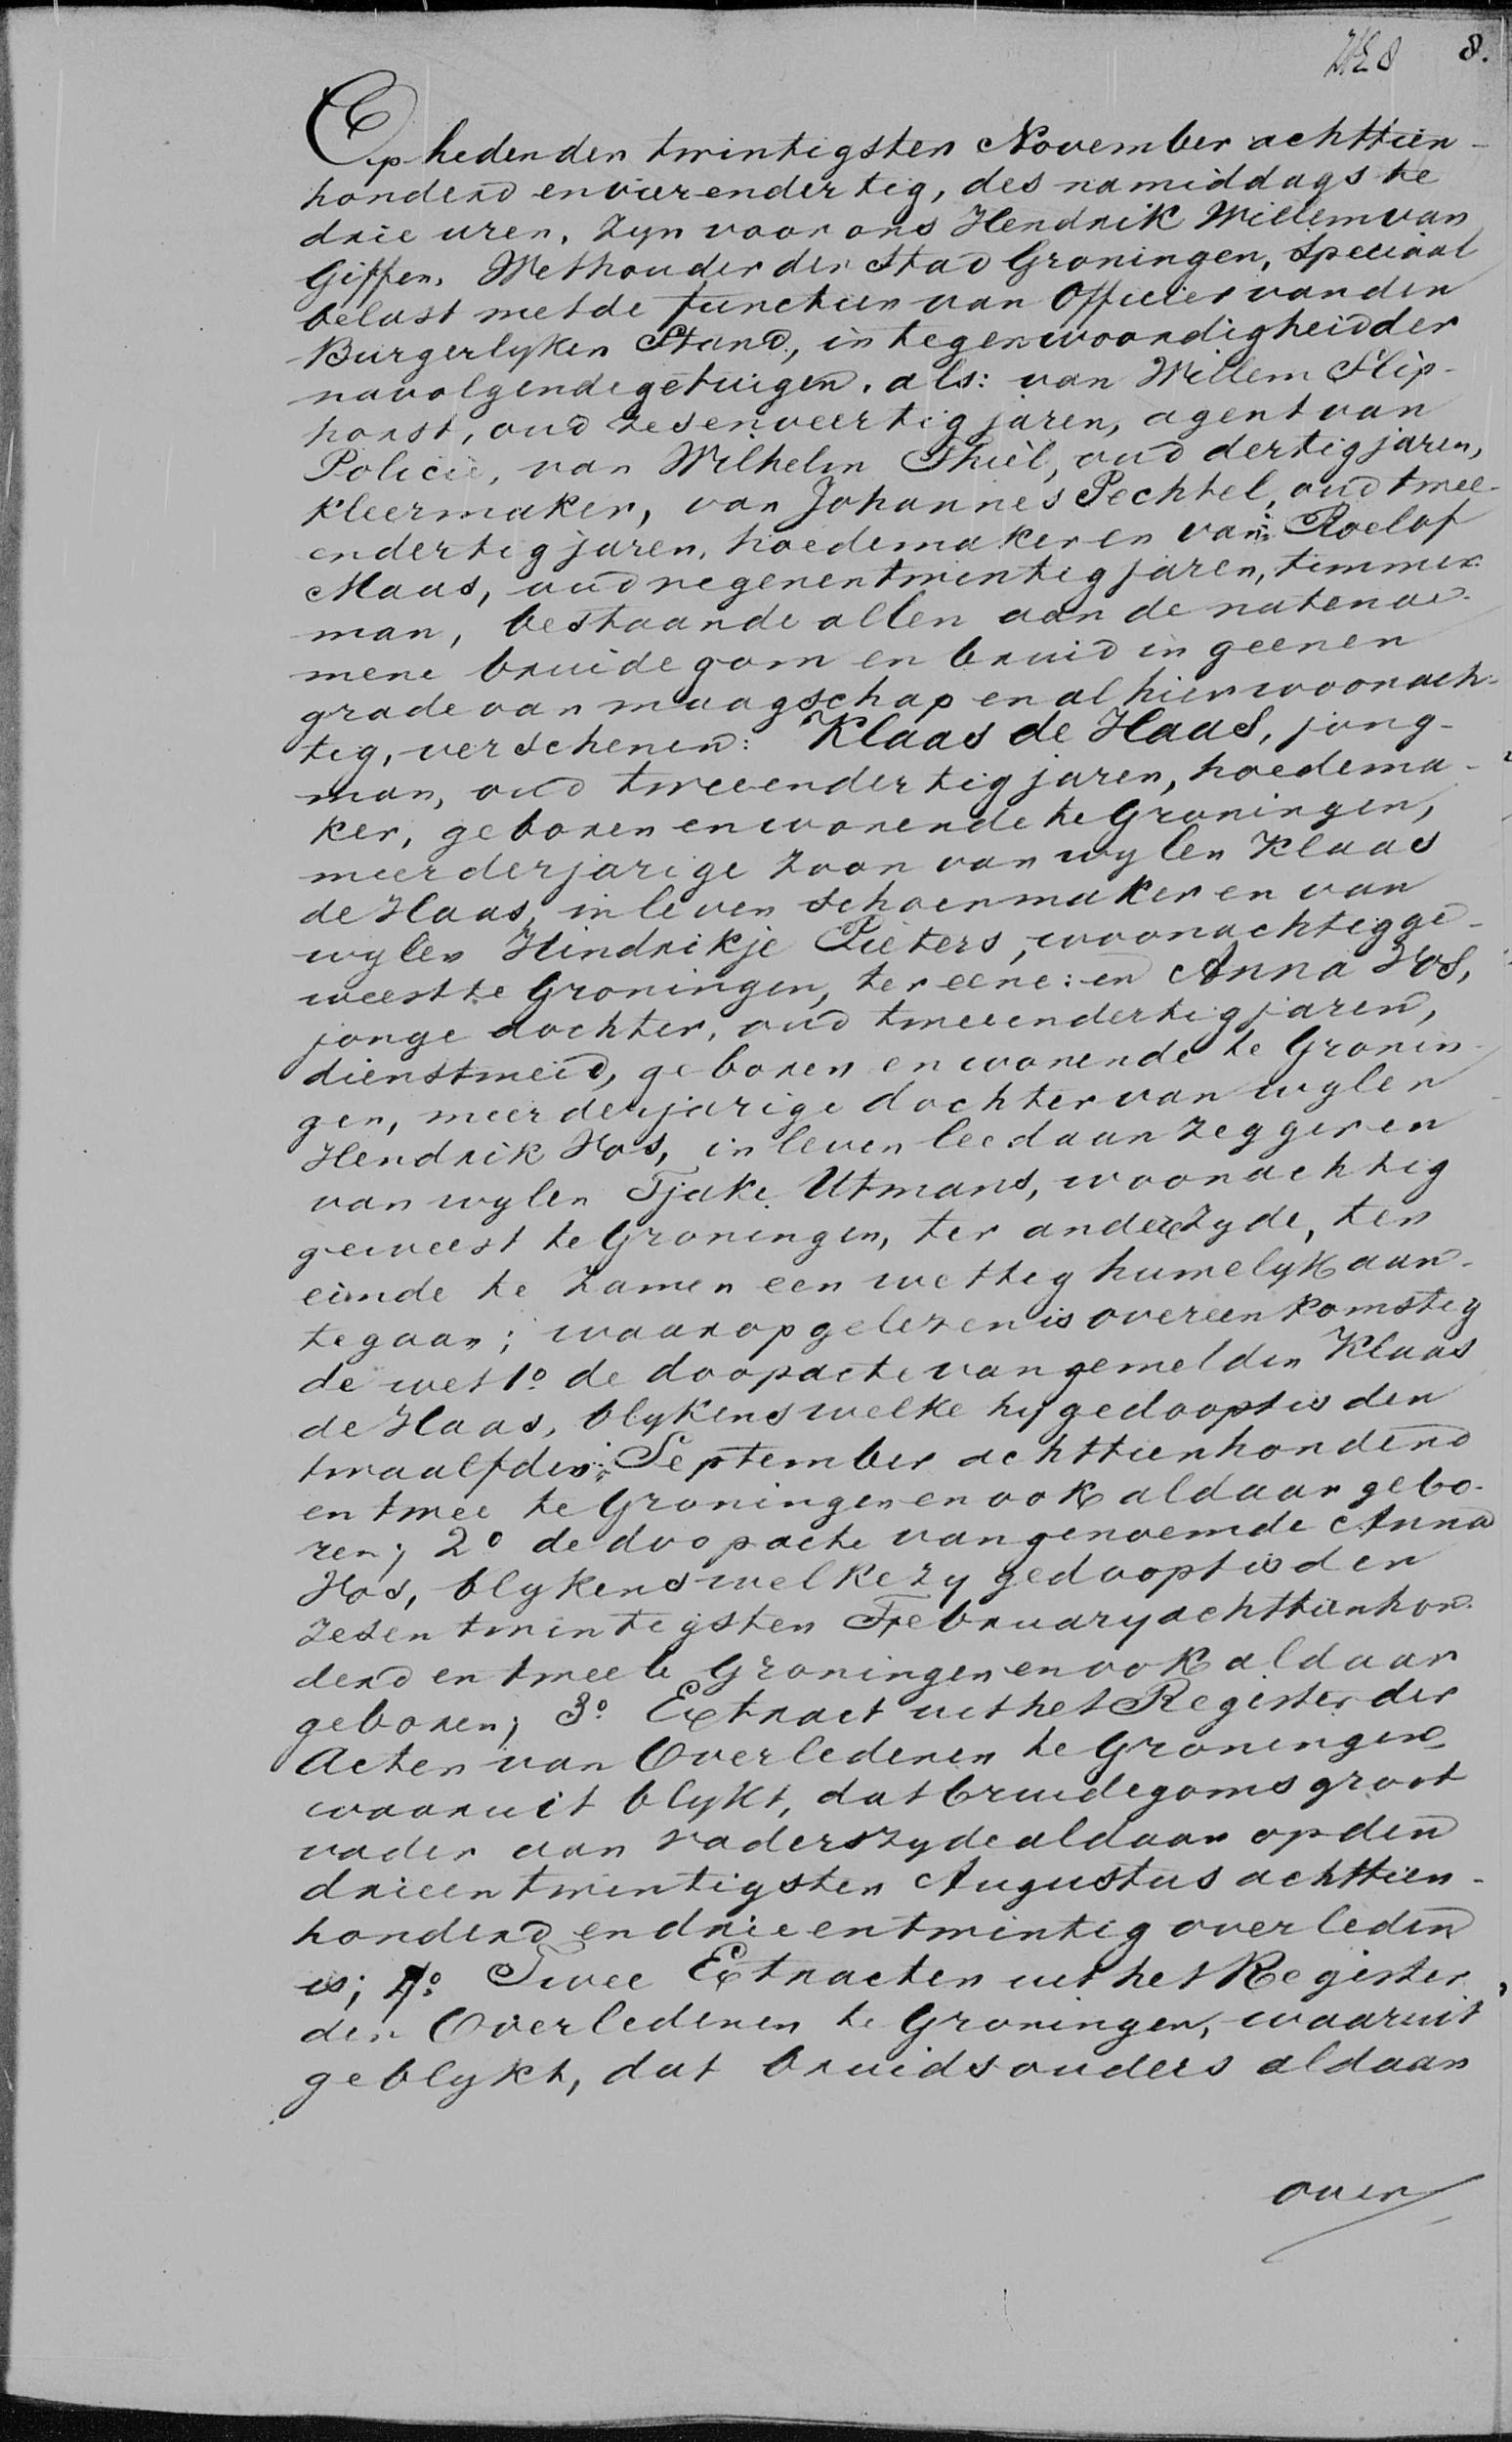 8.
Op heden den twintigsten November achttien-
honderd en vier en dertig, des namiddags te
drie uren, zyn voor ons Hendrik Willem van
Giffen, Wethouder der Stad Groningen, speciaal
belast met de functien van Officier van den
Burgerlyken Stand, in tegenwoordigheid der
navolgende getuigen, als: van Willem Slip-
horst, oud zesenveertig jaren, agent van
Policie, van Wilhelm Thiel, oud dertig jaren,
kleermaker, van Johannes Pechtel, oud twee-
endertig jaren, hoedemaker en van Roelof
Maas, oud negenentwintig jaren, timmer-
man, bestaande allen aan de natenoe-
mene bruidegom en bruid in geenen
grade van maagschap en alhier woonach-
tig, verschenen: Klaas de Haas, jong-
man, oud tweeendertig jaren, hoedema-
ker, geboren en wonende te Groningen,
meerderjarige zoon van wylen Klaas
de Haas, in leven schoenmaker en van
wylen Hindrikje Pieters, woonachtig ge-
weest te Groningen, ter eene: en Anna Hos,
jonge dochter, oud tweeendertig jaren,
dienstmeid, geboren en wonende te Gronin-
gen, meerderjarige dochter van wylen
Hendrik Hos, in leven leedaanzegger en
van wylen Tjake Utmans, woonachtig
geweest te Groningen, ter andere zyde, ten
einde te zamen een wettig huwelyk aan-
tegaan; waarop gelezen is overeenkomstig
de wet 1o de doopacte van gemelden Klaas
de Haas, blykens welke hy gedoopt is den
twaalfden September achttienhonderd
en twee te Groningen en ook aldaar gebo-
ren; 2o de doopacte van genoemde Anna
Hos, blykens welke zy gedoopt is den
zesentwintigsten February achttienhon-
derd en twee te Groningen en ook aldaar
geboren; 3o Extract uit het Register der
Acten van Overledenen te Groningen,
waaruit blykt, dat bruidegoms groot
vader aan vaderszyde aldaar op den
drieentwintigsten Augustus achttien-
honderd en drieentwintig overleden
is; 4o Twee Extracten uit het Register
der Overledenen te Groningen, waaruit
geblykt, dat bruidsouders aldaar
over